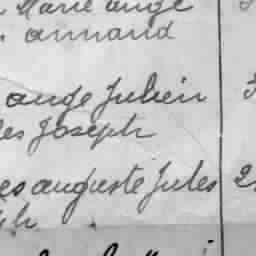 Marie ange
armand
ange Julien
les Joseph
es auguste Jules 2
ph